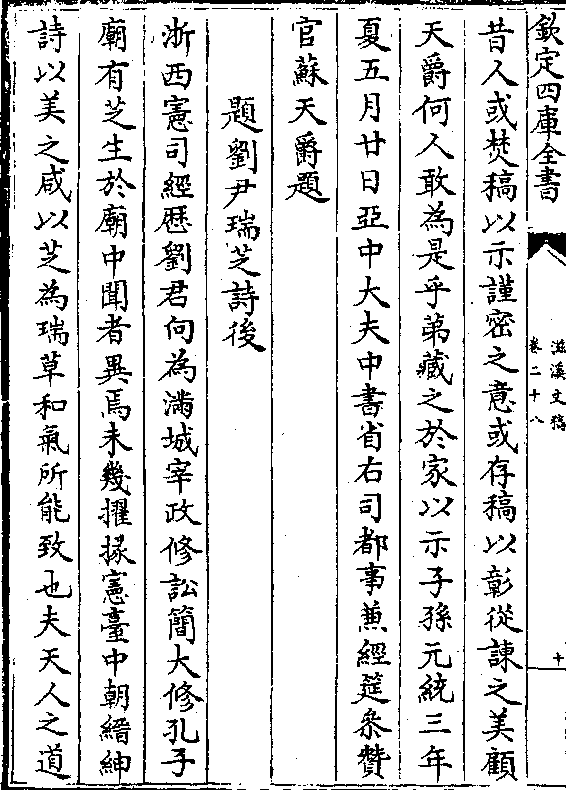 欽定四庫全書
滋溪文稿
卷二十八
十
昔人或焚稿以示謹密之意或存稿以彰從諫之美顧
天爵何人敢為是乎第藏之於家以示子孫元統三年
夏五月廿日亞中大夫中書省右司都事兼經筵叅贊
官蘇天爵題
題劉尹瑞芝詩後
浙西憲司經歷劉君向為滿城宰政修訟簡大修孔子
廟有芝生於廟中聞者異焉未幾擢掾憲臺中朝縉紳
詩以美之咸以芝為瑞草和氣所能致也夫天人之道